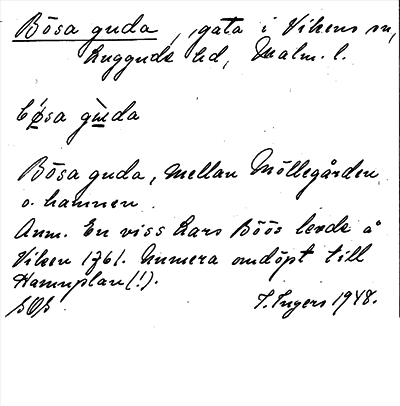 Bösa guda, gata i Vikens sn,
Luggude hd, Malm. l.
bø̀sa gùda
Bösa guda, mellan Möllegården
o. hamnen.
Anm. En viss Lars Böös levde å
Viken 1761. Numera omdöpt till
Hamnplan(!).
I. Ingers 1948.